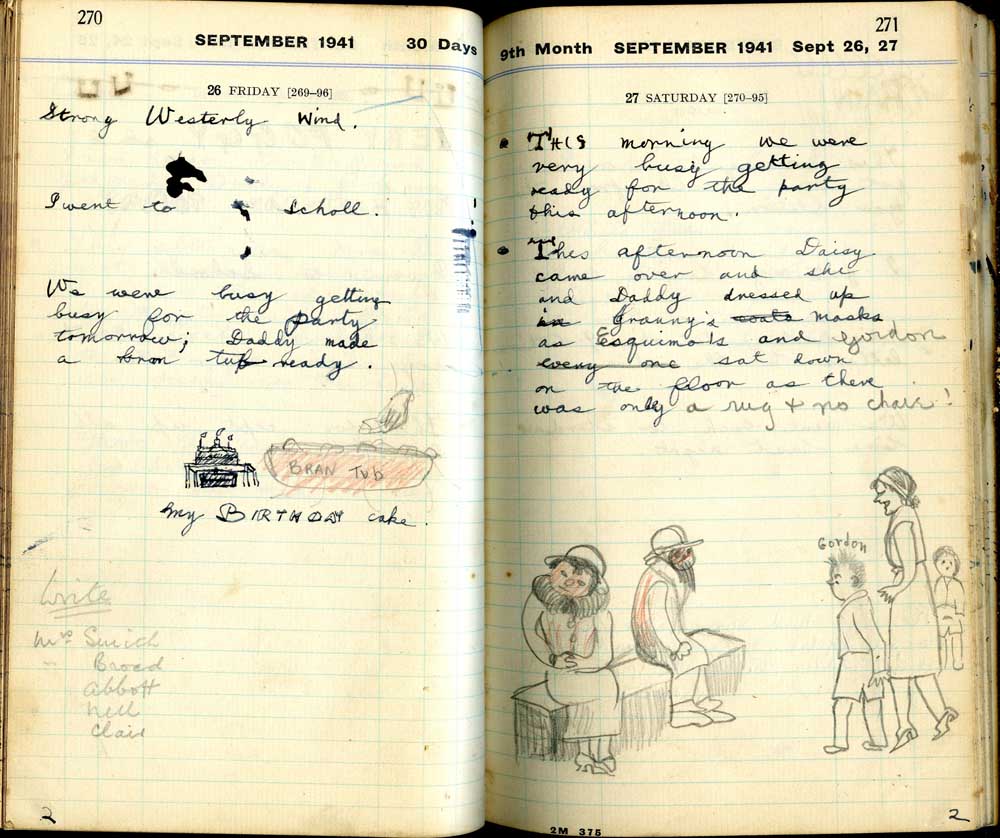 270
SEPTEMBER 1941 30 Days
26 FRIDAY [269–96]
Strong Westerly Wind.
I went to Scholl.
We were busy getting
busy for the party
tomorrow; Daddy made
a bran tub ready.
BRAN Tub
my BIRTHDAY cake.
Write
Mrs Smith
" Broad
Abbott
Clair
2
271
9th Month SEPTEMBER 1941 Sept 26, 27
27 SATURDAY [270–95]
THIS morning we were
very busy getting
ready for the party
this afternoon.
This afternoon Daisy
came over and she
and Daddy dressed up
in Granny's coats masks
as Esquimo's and Gordon
every one sat down
on the floor as there
was only a rug & no chair!
Gordon
2M 375
2